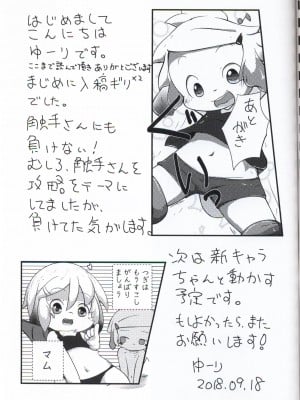 はじめまして
こんにちは
ゆーりです。
ここまで読んで頂きありがとございます
まじめに入稿ギリ××
でした。
触手さんにも
負けない!
むしろ、触手さんを
攻略。をテーマに
してましたが、
負けてた気がします。
あとがき
つぎは
もうすこし
がんばり
ましょう
マム
次は新キャラ
ちゃんと動かす
予定です。
もしよかったら、また
お願いします!
ゆーり
2018.09.18